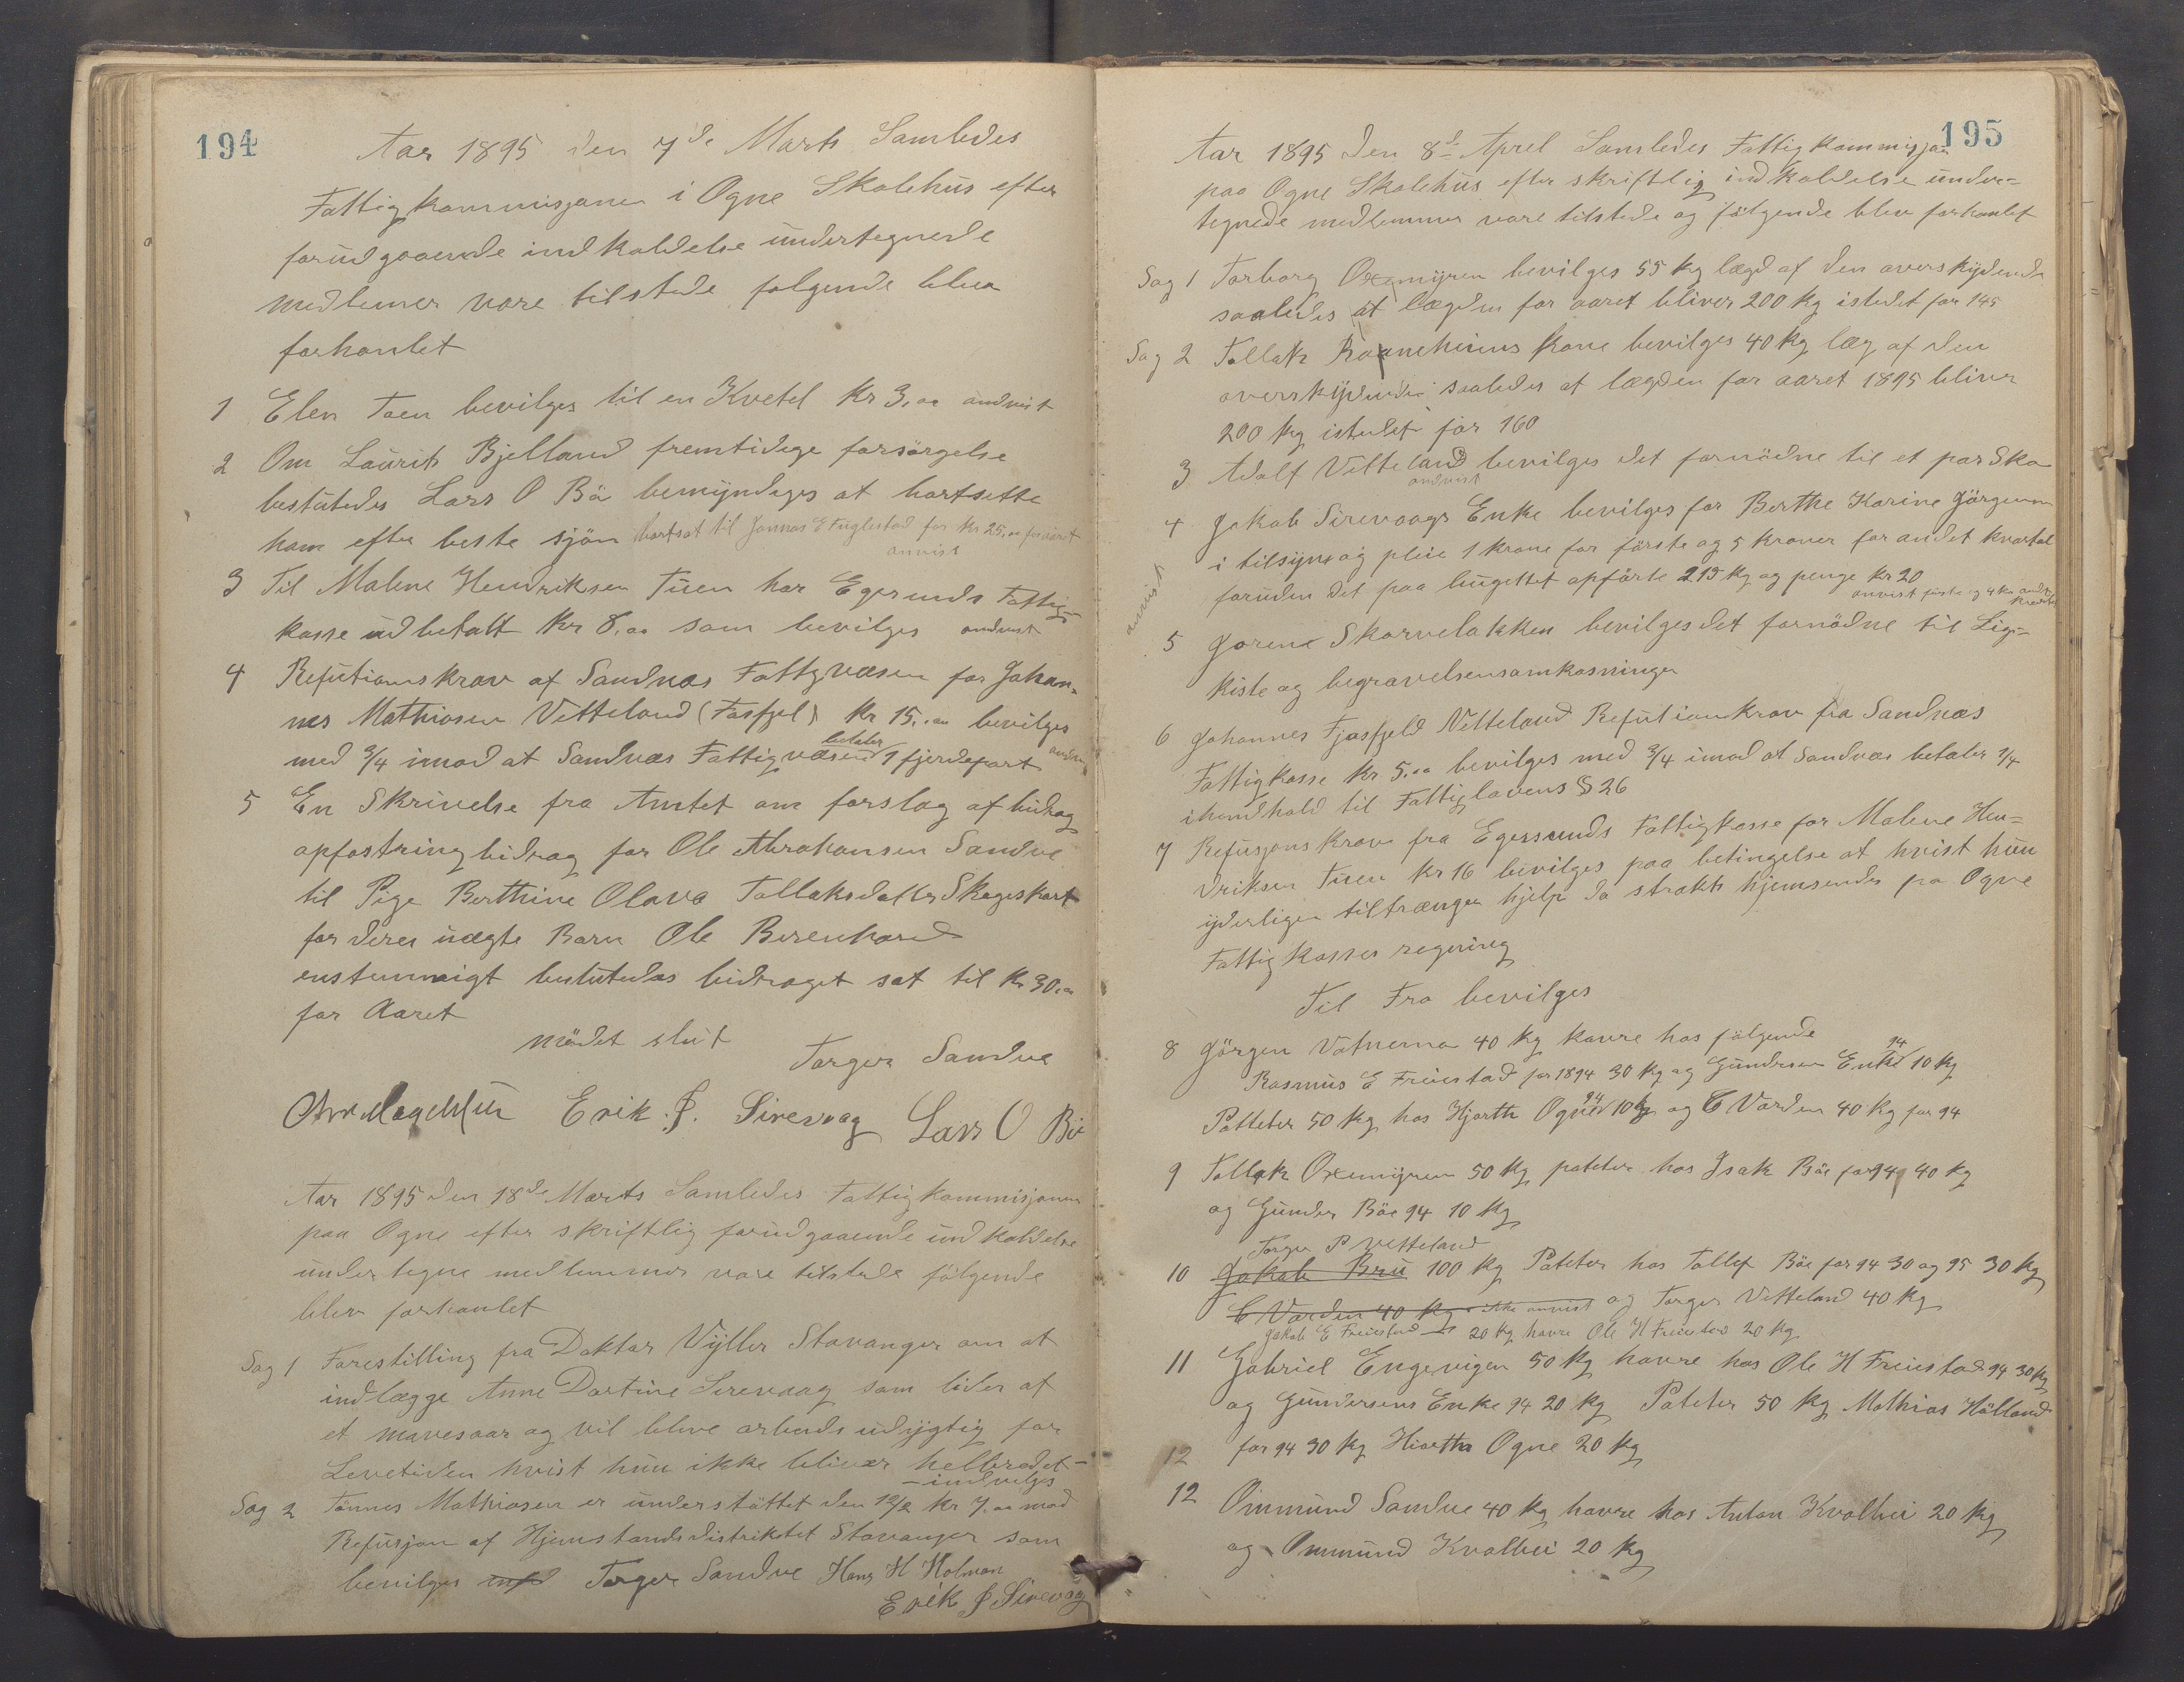 194
Aar 1895 den 7de Marts Samledes
Fattigkommisjonen i Ogne Skolehus efter
forudgaaende indkaldelse undertegnede
medlemer vare tilstede folgende blev
forhanlet
1 Elen Toen bevilges til en Kvetel Kr 3,00 andvist
2 Om Laurits Bjelland fremtidege forsörgelse
beslutedes Lars O Bö bemyndiges at bortsette
ham efter beste sjön bortsat til Jonnas E Fuglestad for Kr 25,00 for aaret
anvist
3 Til Malene Hendriksen Tuen har Egersunds Fattig-
kasse udbetalt Kr 8,00 som bevilges andvist
4 Refutionskrav af Sandnæs Fattgvæsen for Johan-
nes Mathiasen Vetteland (Fasfjel) Kr 15,00 bevilges
med 3/4 imod at Sandnæs Fattigvæsen betaler 1 fjerdepart
5 En Skrivelse fra Amtet om forslag af bidrag
opfostring bidrag for Ole Abrahamsen Sandve
til Pige Berthine Olava Tollaksdatter Skogeskart
for deres uægte Barn Ole Berenhard
enstemmigt beslutedes bidraget sat til Kr 30,00
for Aaret
mödet slut Torger Sandve
Erik J. Sirevaag Lars O Bö
Aar 1895 den 18de Marts Samledes Fattigkommisjonen
paa Ogne efter skriftlig forudgaaende indkaldelse
undertegne medlemmer vare tilstede fölgende
blev forhanlet
Sag 1 Forestilling fra Doktor Vyller Stavanger om at
indlægge Anne Dortine Sirevaag som lider af
et mavesaar og vil blive arbeids udygtig for
Levetiden hvist hun ikke bliver helbredet-
-indvilges
Sag 2 Tönnes Mathiasen er understöttet den 12/2 Kr 7,00 mod
Refusjon af Hjemstandsdistriktet Stavanger som
bevilges Torger Sandve Hans H Holman
Erik J Sirevaag
195
Aar 1895 den 8de Aprel Samledes Fattigkommisjon
paa Ogne Skolehus efter skriftlig indkaldelse under=
tegnede medlemmer vare tilstede og fölgende blev forhanlet
Sag 1 Torborg Oxemyren bevilges 55 kg lægd af den overskydende
saaledes at lægden for aaret bliver 200 kg istedet for 145
Sag 2 Tollak kone bevilges 40 kg læg af den
overskydende saaledes at lægden for aaret 1895 bliver
200 kg istedet for 160
3 Adolf Vetteland bevilges det fornödne til et par Sko
andvist
4 Jakob Sirevaags Enke bevilges for Berthe Karine Jörgensen
i tilsyn og pleie 1 krone for förste og 5 kroner for andet kvartal
foruden det paa bugettet opförte 215 kg og penge kr 20
anvist förste og 4 kr andet
anvist
5 Gorene Skarvelakken bevilges det fornödne til Lig-
kiste og begravelsensomkosninger
6 Johannes Fjasfjeld Vetteland Refutionkrav fra Sandnæs
Fattigkasse Kr 5,00 bevilges med 3/4 imod at Sandnæs betaler 1/4
ihendhold til Fattiglovens § 26
7 Refusjons Krav fra Egersunds Fattigkasse for Malene Hen=
driksen Tuen Kr 16 bevilges paa betingelse at hvist hun
yderligere tiltrænger hjelp da strakts hjemsendes pa Ogne
Fattigkasses regning
Til Fro bevilges
8 Görgen Vatnemo 40 kg havre hos fölgende
Rasmus E Freiestad for 1894 30 kg og Gundersen Enke 94 10 kg
Patteter 50 kg hos Hjorth Ogne 94 10 kg og C Varden 40 kg for 94
9 Tollak Oxemyren 50 kg pateter hos Isak Böe for 94 40 kg
og Gunder Böe 94 10 kg
Torger P Vetteland
10 Jakob Bru 100 kg Pateter hos Tollef Böe for 94 30 og 95 30 kg
C Varden 40 kg ikke anvist og Torger Vetteland 40 kg
Jakob E Freiestad 20 kg havre Ole H Freiestad 20 kg
11 Gabriel Engevigen 50 kg havre hos Ole H Freiestad 94 30 kg
og Gundersens Enke 94 20 kg Pateter 50 kg Mathias Hölland
12 for 94 30 kg Hiorth Ogne 20 kg
12 Ommund Sandve 40 kg havre hos Anton Kvalhei 20 kg
og Ommund Kvalhei 20 kg